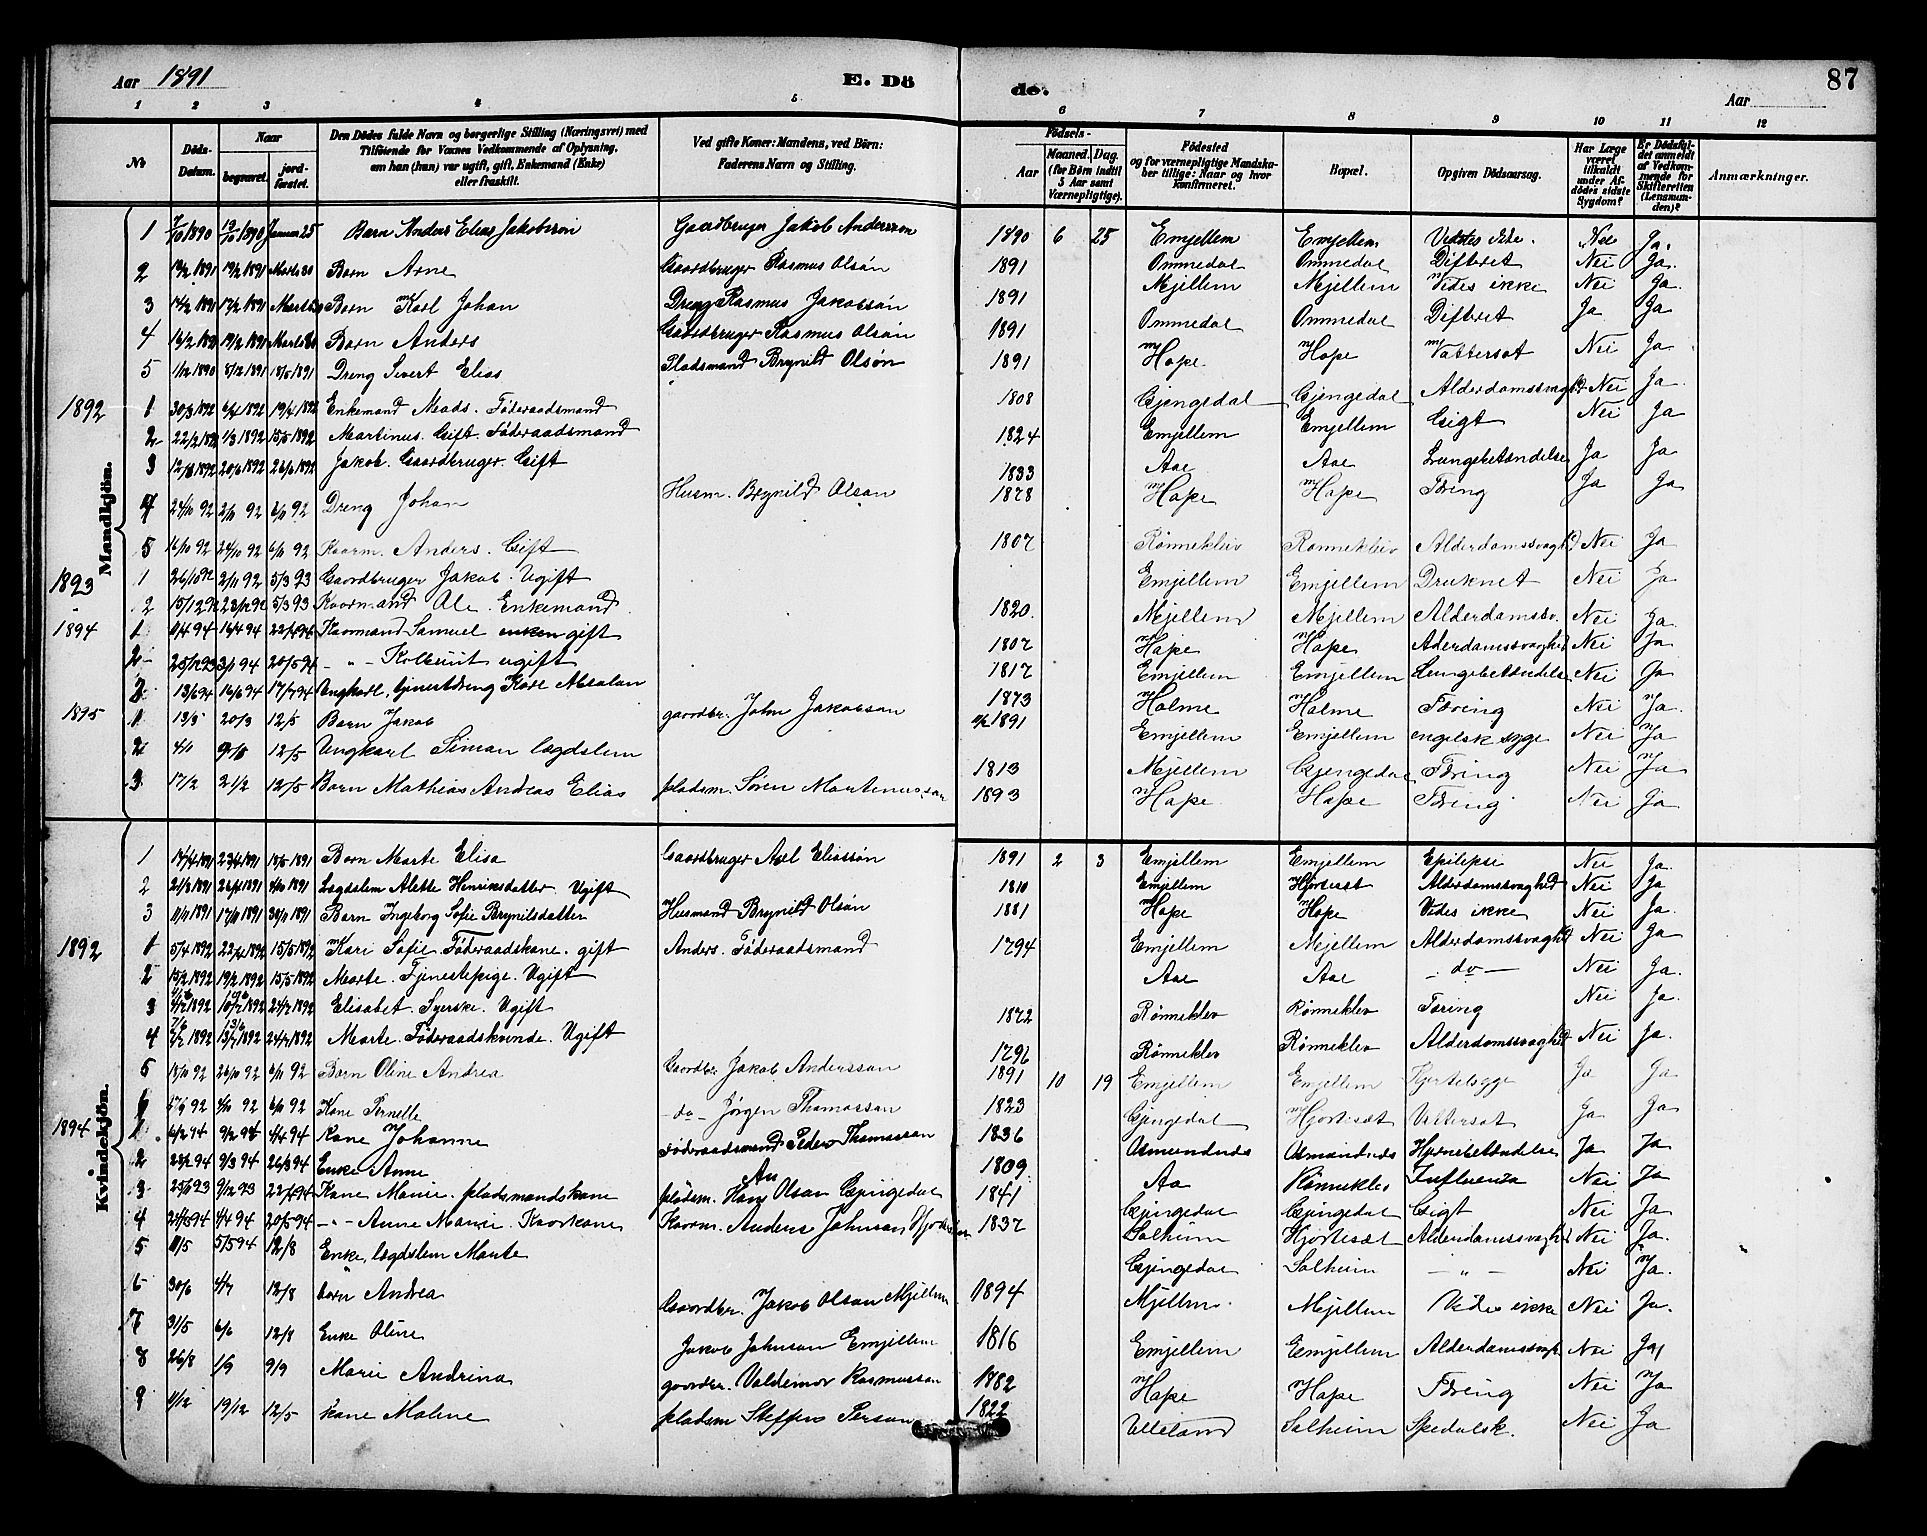 Aar 1891 E. Döde. Aar 87
1 2 3 4 5 6 7 8 9 10 11 12
№ Döds-Datum. Naar begravet. jord-fæstet. Den Dödes fulde Navn og borgerlige Stilling (Næringsvei) med Tilföiende for Voxnes Vedkommende af Oplysning, om han (hun) var ugift, gift, Enkemand (Enke) eller fraskilt. Ved gifte Koner: Mandens, ved Börn: Faderens Navn og Stilling. Födsels- Aar Maaned. Dag. (for Börn indtil 5 Aar samt Værnepligtige). Födested og for værnepligtige Mandskaber tillige: Naar og hvor konfirmeret. Bopæl. Opgiven Dödsaarsag. Har Læge været tilkaldt under Afdödes sidste Sygdom? Er Dödsfaldet anmeldt af Vedkommende for Skifteretten (Lensmanden)? Anmærkninger.
Mandkjön.
1 7/10 1890 12/10 1890 Januar 25 Barn Anders Elias Jakobsson Gaardbruger Jakob Andersson 1890 6 25 Emjellem Emjellem Nei Ja.
2 Barn Arne Gaardbruger Rasmus Olsön 1891 Ommedal Ommedal Difterit Nei Ja.
3 Barn Karl Johan Dreng Rasmus Jakobsön 1891 Mjellem Mjellem Vides ikke Nei Ja.
4 16/2 1891 19/2 1891 Barn Anders Gaardbruger Rasmus Olsön 1891 Ommedal Ommedal Difterit Ja Ja
5 1/12 1890 8/12 1891 18/5 1891 Dreng Sivert Elias Pladsmand Brynild Olsön 1891 Hope Hope Vattersot Nei Ja
1892 1 30/3 1892 6/4 1892 19/4 1892 Enkemand Mads. Föderaadsmand 1808 Gjengedal Gjengedal Alderdomssvaghed Nei Ja
2 22/2 1892 1/3 1892 15/5 1892 Martinus. Gift. Föderaadsmand 1824 Emjellem Emjellem Gigt Nei Ja
3 20/6 1892 26/6 1892 Jakob. Gaardbruger. Gift 1833 Aae Aae Lungebetændelse Ja Ja
4 24/10 92 2/11 92 6/11 92 Dreng Johan Husm. Brynild Olsøn 1878 Hope Hope Tæring Ja Ja
5 16/10 92 24/10 92 6/11 92 Kaarm. Anders. Gift 1807 Rønneklev Rønneklev Alderdomssvaghed Nei Ja
1893 1 26/10 92 2/11 92 5/3 93 Gaardbruger Jakob. Ugift Emjellem Emjellem Druknet Nei Ja
2 15/12 92 23/12 92 5/3 93 Kaarmand Ole. Enkemand 1820 Mjellem Mjellem Alderdomssv. Nei Ja.
1894 1 11/4 94 16/4 94 22/4 94 Kaarmand Samuel gift 1807 Hope Hope Alderdomssvaghed Nei Ja
2 25/12 93 3/1 94 20/5 94 - " - Kolbeint ugift 1817 Emjellem Emjellem Lungebetændelse Nei Ja
13/6 94 16/6 94 17/7 94 Ungkarl, tjenestdreng Karl 1873 Holme Holme Tæring Nei Ja.
1895 1 13/3 20/3 12/5 Barn Jakob gaardbr. John Jakobsøn 1891 Emjellem Emjellem engelsk syge Nei Ja
2 4/1 12/5 Ungkarl Simon lægdslem 1813 Mjellem Gjengedal Tæring Nei Ja
3 17/2 21/2 12/5 Barn Mathias Andreas Elias pladsm. Søren Martenussøn 1893 Hope Hope Tæring Nei Ja
Kvindekjön.
1 23/4 1891 18/5 1891 Barn Marte Elisa Gaardbruger Axel Eliassön 1891 2 3 Emjellem Emjellem Epilepsi Nei Ja.
2 Lægdslem Alette Henriksdatter. Ugift 1810 Emjellem Hjortesæt Alderdomssvaghed Nei Ja
3 Barn Ingeborg Sofie Brynilsdatter Husmand Brynild Olsön 1881 Hope Hope Vides ikke Nei Ja.
1892 1 5/4 1892 22/4 1892 15/5 1892 Kari Sofie. Föderaadskone. gift Anders. Föderaadsmand 1794 Emjellem Mjellem Alderdomssvaghed Nei Ja
2 19/2 1892 15/5 1892 Marte. Tjenestepige. Ugift Aae Aae - do - Nei Ja.
3 24/7 1892 Elisabet. Syerske. Ugift 1872 Rönneklev Rönneklev Tæring Nei Ja.
4 24/7 1892 Marte. Föderaadskvinde. Ugift 1796 Rönneklev Rönneklev Alderdomssvaghed Nei Ja.
5 18/10 92 26/10 92 6/11 92 Barn Oline Andrea Gaardbr. Jakob Anderssøn 1891 10 19 Emjellem Emjellem Kjertelsyge Ja Ja
92 4/10 92 6/11 92 Kone Pernelle - do - Jørgen Thomassøn 1823 Gjengedal Hjortesæt Vattersot Ja Ja
1894 1 6/2 94 9/2 94 4/4 94 Kone Johanne Föderaadsmand Peder Thomassøn 1836 Hjernebetændelse Ja Ja
2 9/3 94 26/3 94 Enke Anne Aa 1809 Aa Rønneklev Influenza Nei Ja
3 25/11 93 9/12 93 22/4 94 Kone Marie. pladsmandskone pladsm. Hans Olsøn Gjengedal 1841 Gjengedal Gjengedal Gigt Nei Ja
4 4/4 94 20/5 94 - " - Anne Marie. Kaarkone Kaarm. Anders Johnsøn 1837 Solheim Hjortesæt Alderdomssvaghed Nei Ja.
5 11/5 5/5 94 12/8 Enke, lægdslem Marte Gjengedal Solheim - " - Nei Ja.
6 30/6 4/7 12/8 barn Andrea Gaardbr. Jakob Olsøn Mjellem 1894 Mjellem. Mjellem Vides ikke Nei Ja.
7 31/5 6/6 12/8 Enke Oline Jakob Johnsøn Emjellem 1816 Emjellem Emjellem Nei Ja
8 26/8 1/9 9/9 Marie Andrina gaardbr. Valdemar Rasmussøn 1882 Hope Hope Tæring Nei Ja
9 11/12 19/12 12/5 Kone Malene pladsm Steffen Persøn 1822 Utteland Solheim Spedalsk. Nei Ja